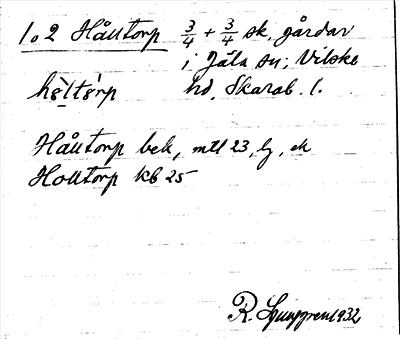 1 o 2 Hålltorp 3/4 + 3/4 sk. gårdar
i Jäla sn; Vilske
hd, Skarab. l.
Hålltorp bek, mtl 23, lj, ek
Holltorp kb 25
R. Ljunggren 1932